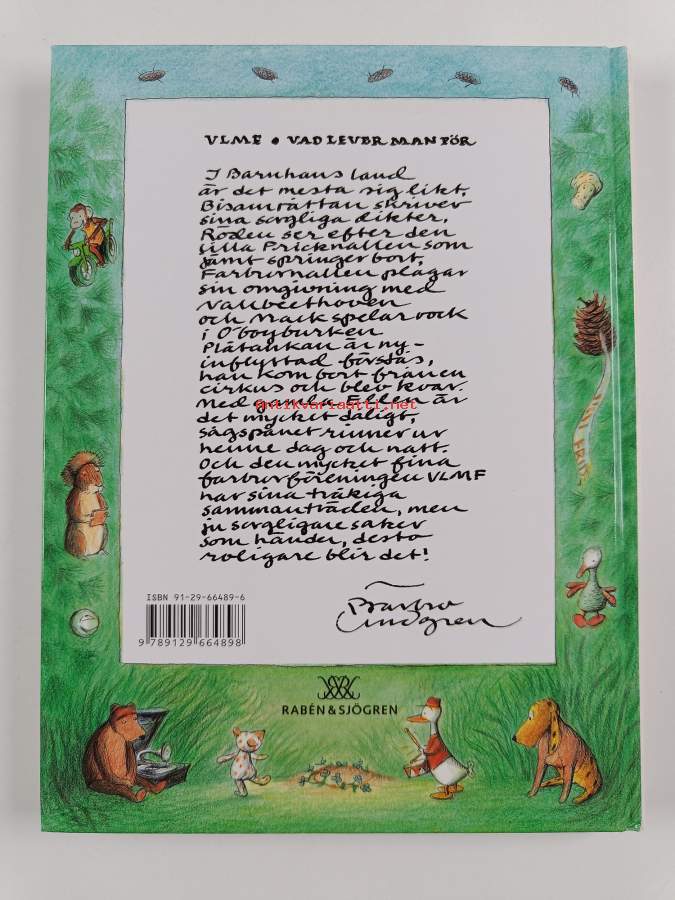 VLMF • VAD LEVER MAN FÖR
I Barnhans land
är det mesta sig likt.
Bisamråttan skriver
sina sorgliga dikter,
Röden ser efter den
lilla Pricknallen som
jämt springer bort,
Farbrornallen plågar
sin omgivning med
Nallbeethoven
och Mack spelar rock
i O'boyburken
Plåtankan är ny-
inflyttad förstås,
han kom bort från en
cirkus och blev kvar.
Med gamla Ellen är
det mycket dåligt,
sågspånet rinner ur
henne dag och natt.
Och den mycket fina
farbrorföreningen VLMF
har sina tråkiga
sammanträden, men
ju sorgligare saker
som händer, desto
roligare blir det!
antikvariaatti.net
Barbro
Lindgren
ISBN 91-29-66489-6
9 789129 664898
RABÉN & SJÖGREN